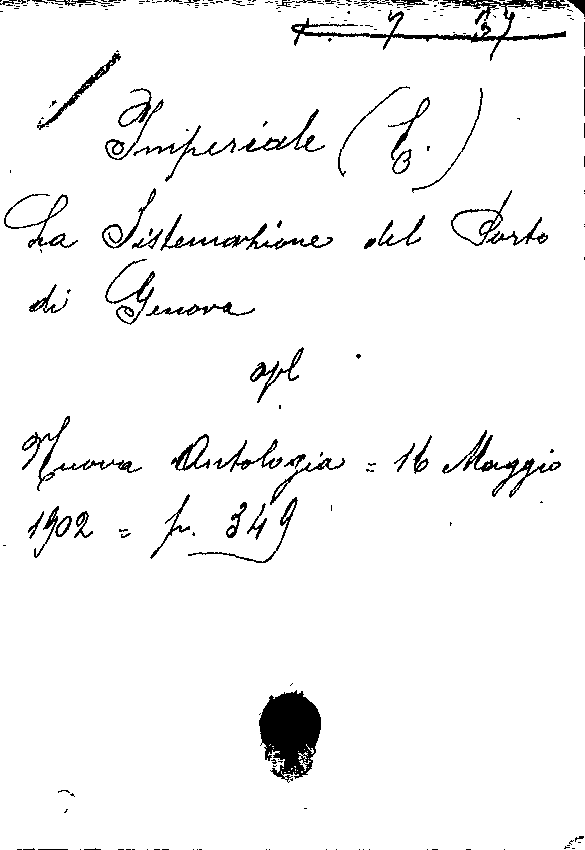 Imperiale (C.)
La Sistemazione del Porto
di Genova
Nuova Antologia = 16 Maggio
1902 = p. 349